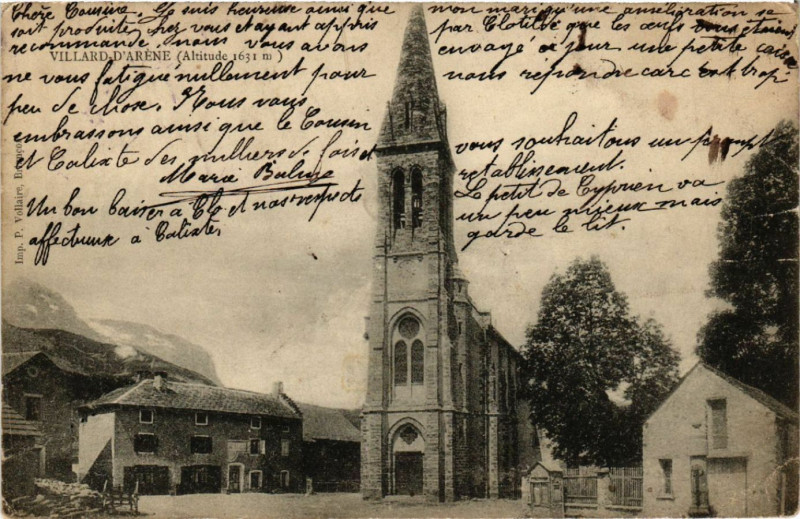 Chère Cousine. Je suis heureuse ainsi que
mon mari qu'une amélioration se
soit produite chez vous et ayant appris
par Clotilde que les œufs vous étaient
recommandé, nous vous avons
envoyé ce jour une petite caisse
VILLARD-D'ARÈNE (Altitude 1631 m)
ne vous fatigue nullement pour
nous répondre car c'est trop
peu de chose. Nous vous
embrassons ainsi que le Cousin
et Calixte des milliers de fois et
vous souhaitons un prompt
rétablissement.
Marie
Le petit de Cyprien va
un peu mieux mais
garde le lit.
Un bon baiser à Clo et nos respects
affectueux à Calixte,
Imp. P. Vollaire, Briançon